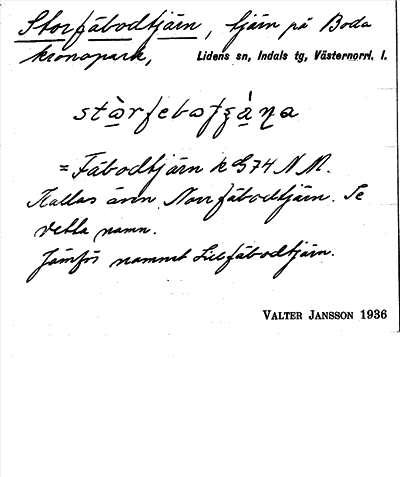 Storfäbodtjärn, tjärn på Boda
kronopark, Lidens sn, Indals tg, Västernorrl. l.
= Fäbodtjärn k G74 NM.
Kallas även Norrfäbodtjärn. Se
detta namn.
Jämför namnet Lillfäbodtjärn.
VALTER JANSSON 1936